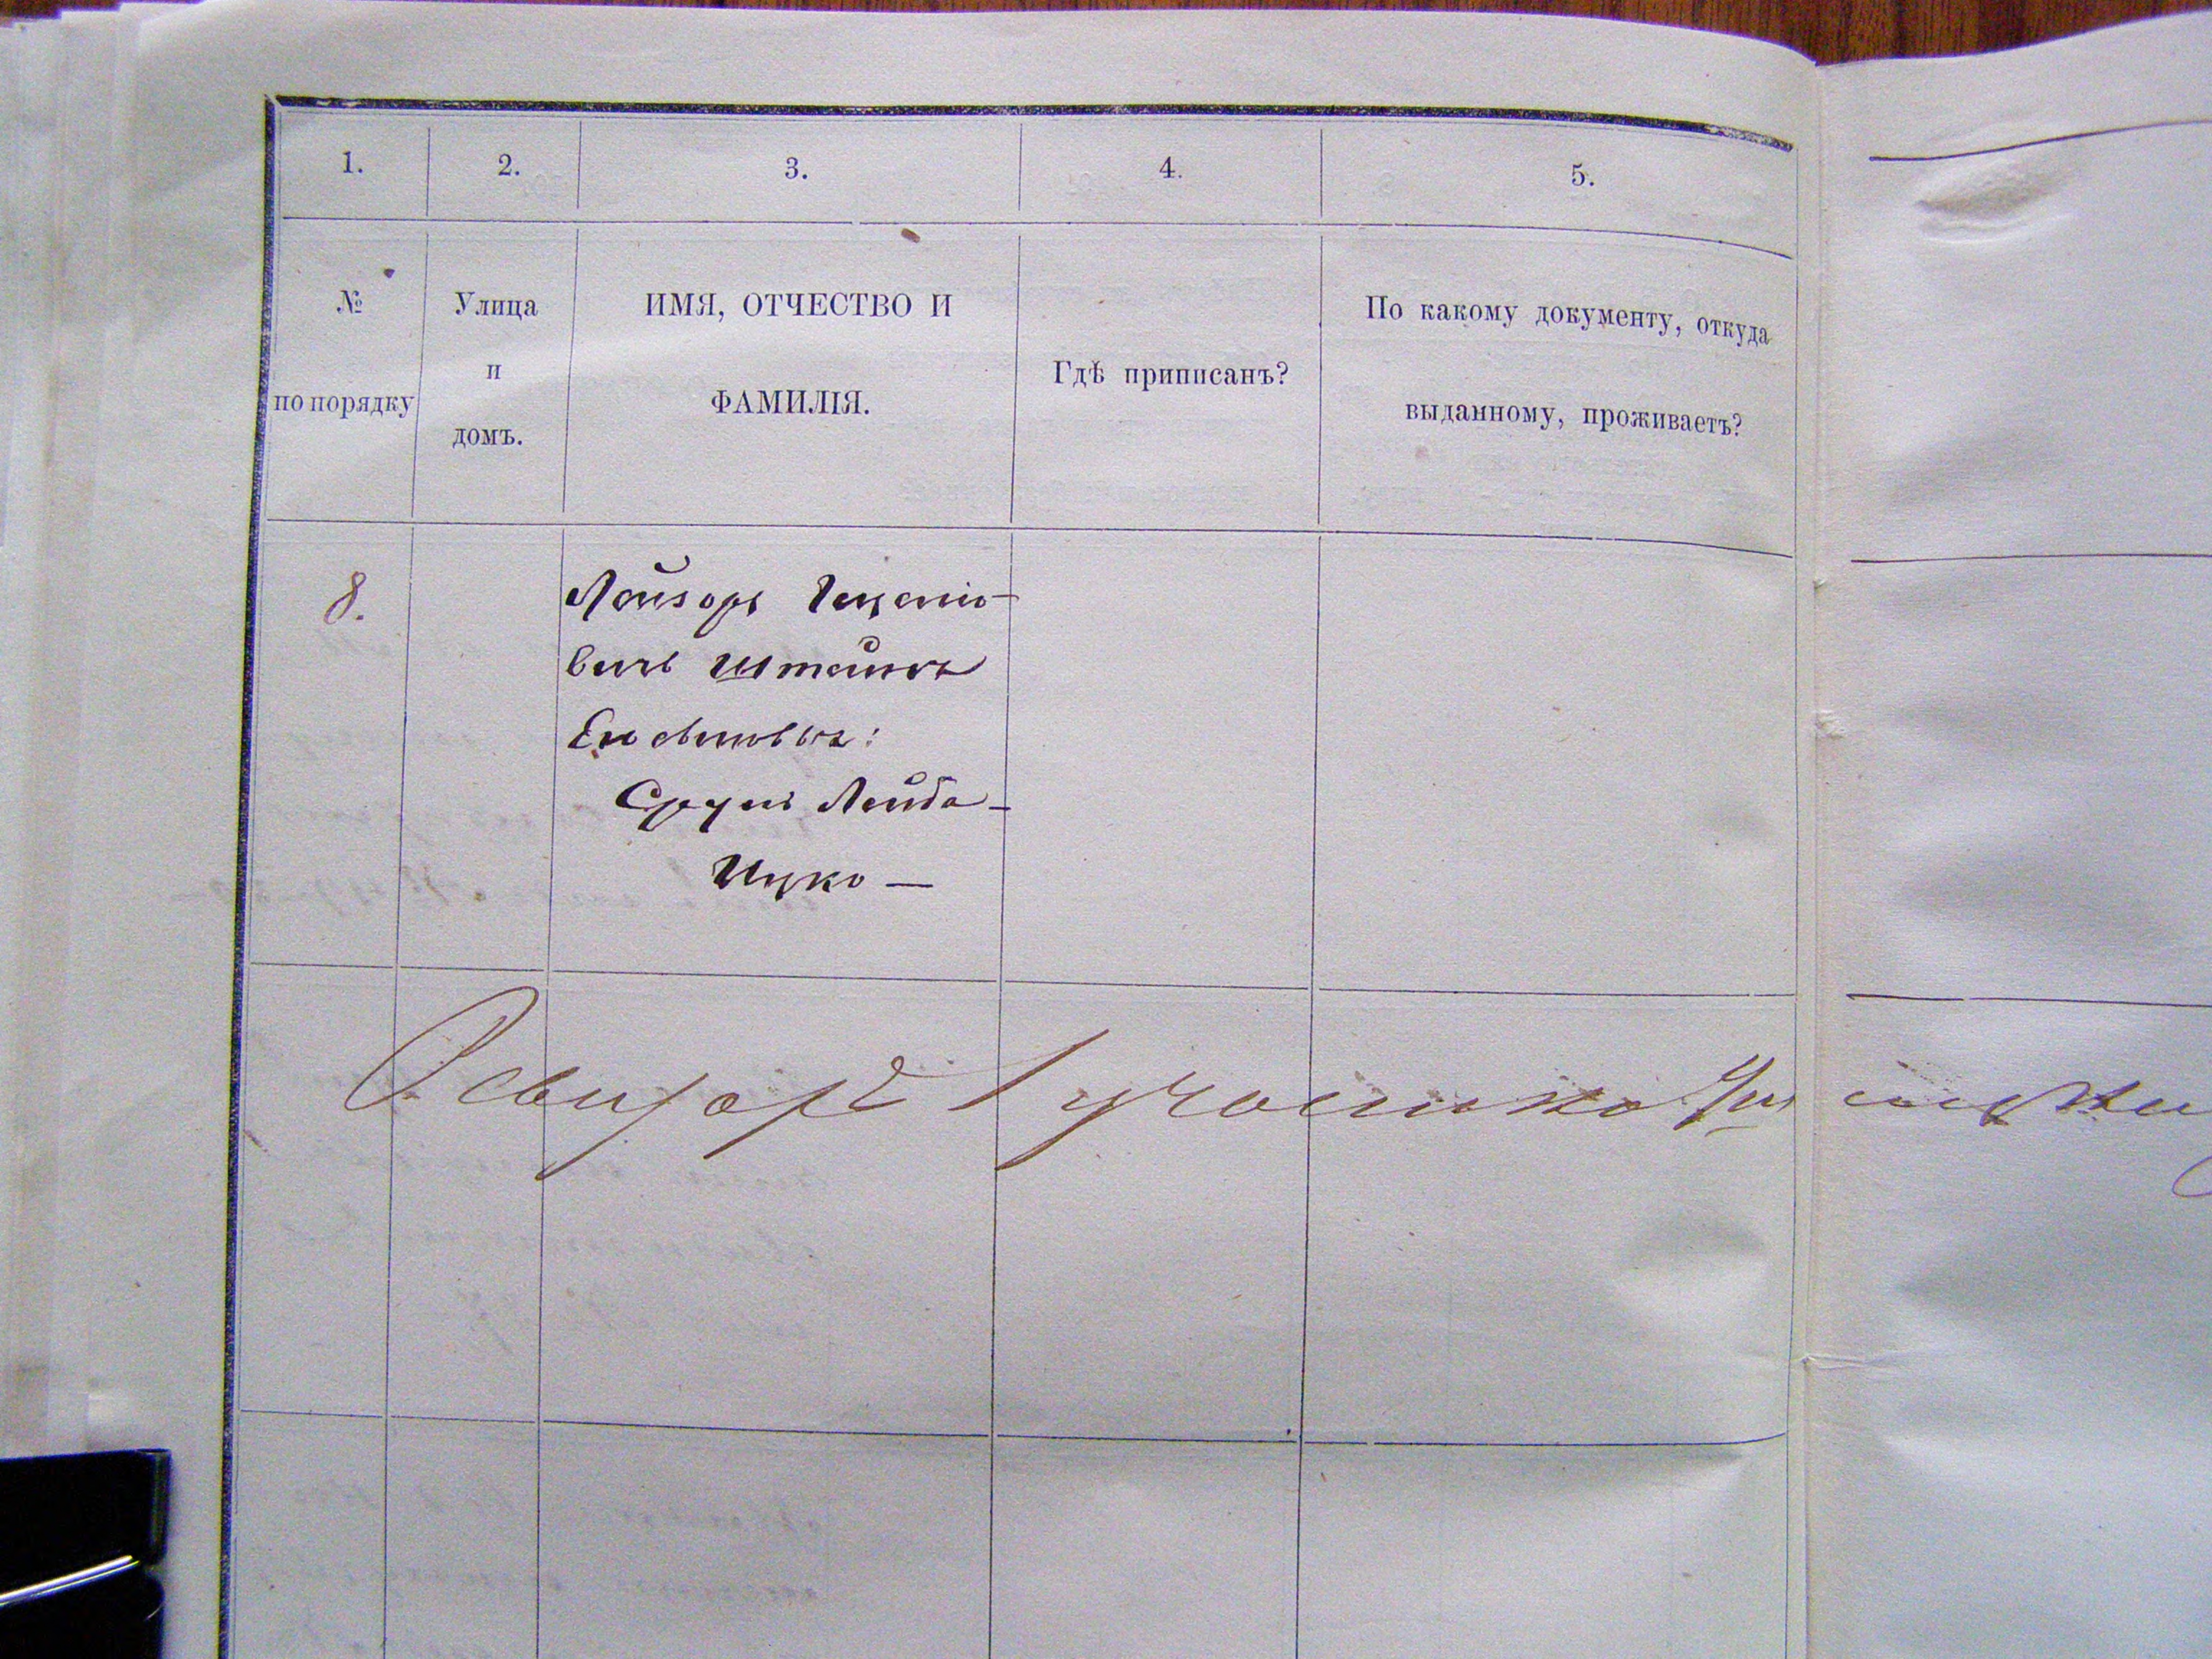 1. 2. 3. 4. 5.
№
по порядку
Улица
и
домъ.
ИМЯ, ОТЧЕСТВО И
ФАМИЛІЯ.
Гдѣ приписанъ?
По какому документу, откуда
выданному, проживаетъ?
8.
Лейзоръ
вичъ Штейнъ
Его сыновья:
Сруль Лейба —
Ицко —
Ревизоръ 1 участка